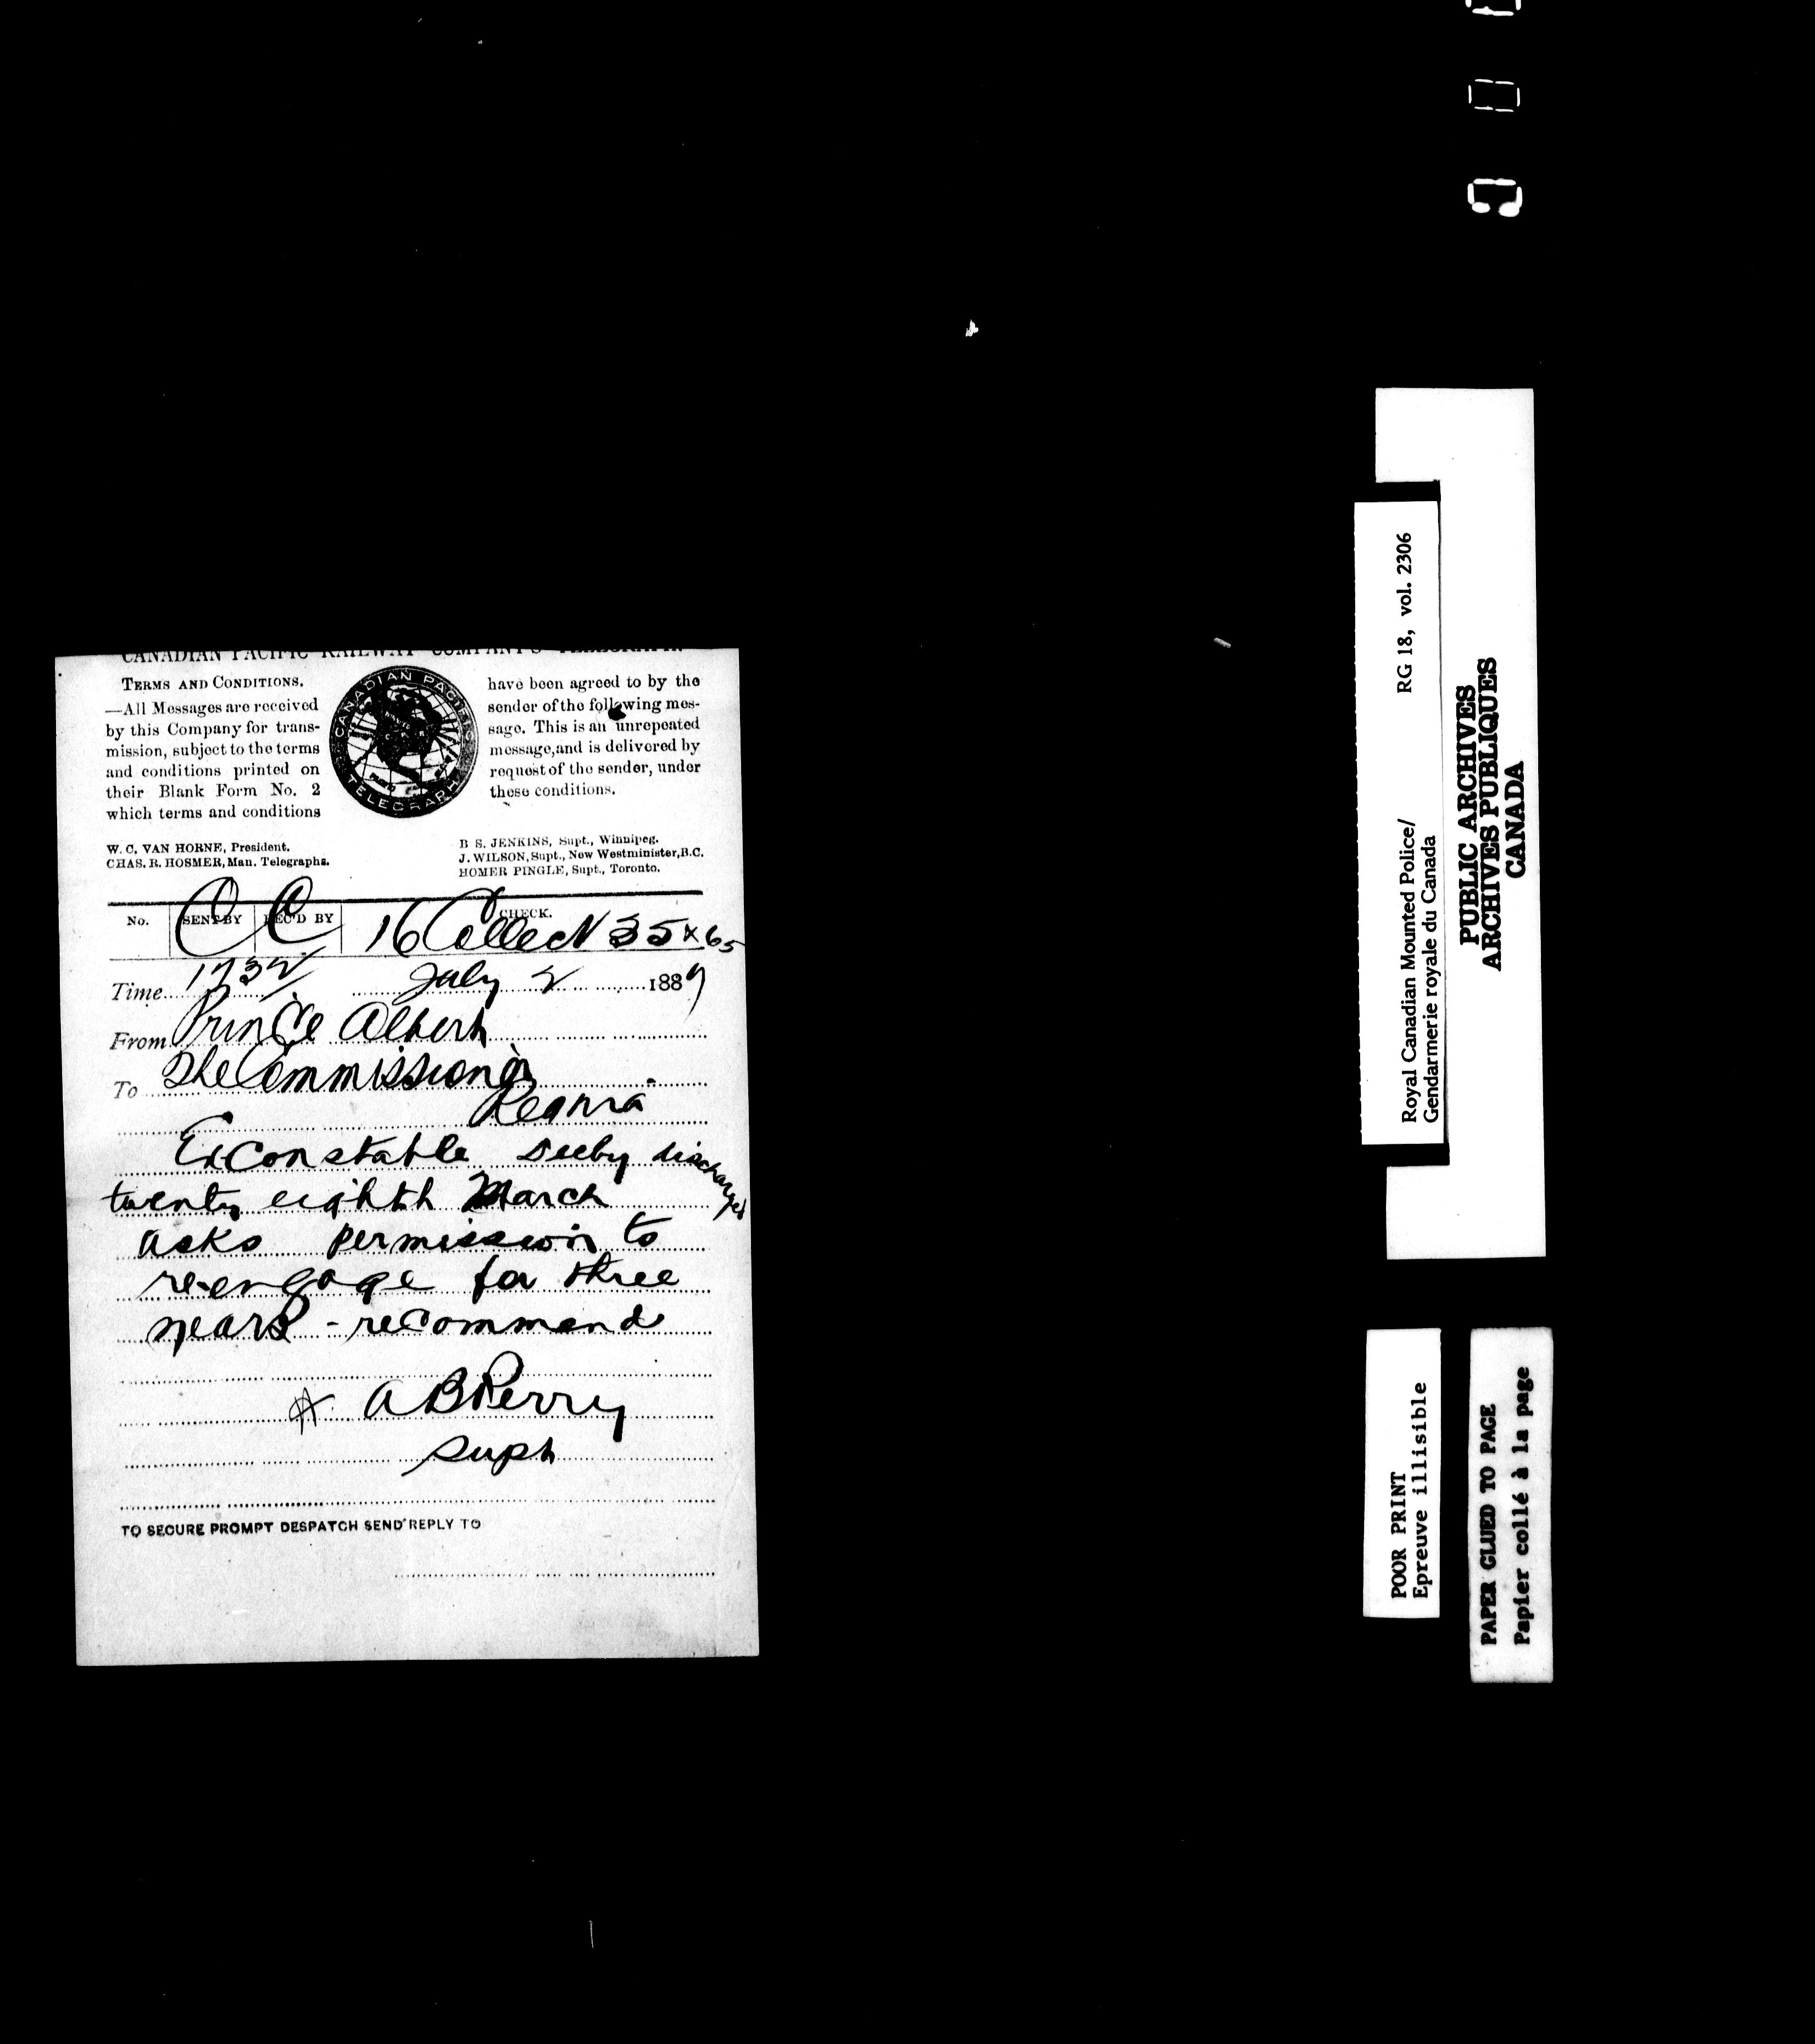 CANADIAN PACIFIC RAILWAY COMPANY'S TELEGRAPH
TERMS AND CONDITIONS.
—All Messages are received
by this Company for trans-
mission, subject to the terms
and conditions printed on
their Blank Form No. 2
which terms and conditions
CANADIAN PACIFIC
TELEGRAPH
have been agreed to by the
sender of the following mes-
sage. This is an unrepeated
message, and is delivered by
request of the sender, under
these conditions.
W. C. VAN HORNE, President.
CHAS. R. HOSMER, Man. Telegraphs.
B S. JENKINS, Supt., Winnipeg.
J. WILSON, Supt., New Westminister, B.C.
HOMER PINGLE, Supt., Toronto.
No. SENT BY REC'D BY CHECK.
C C 16 Collect 35 x 65
Time 1732 July 2 1889
From Prince Albert
To The Commissioner
Regina
Ex Constable discharged
twenty eighth March
asks permission to
re-engage for three
years - recommend
A B Perry
Supt
TO SECURE PROMPT DESPATCH SEND REPLY TO
Royal Canadian Mounted Police/ RG 18, vol. 2306
Gendarmerie royale du Canada
PUBLIC ARCHIVES
ARCHIVES PUBLIQUES
CANADA
POOR PRINT
Epreuve illisible
PAPER GLUED TO PAGE
Papier collé à la page